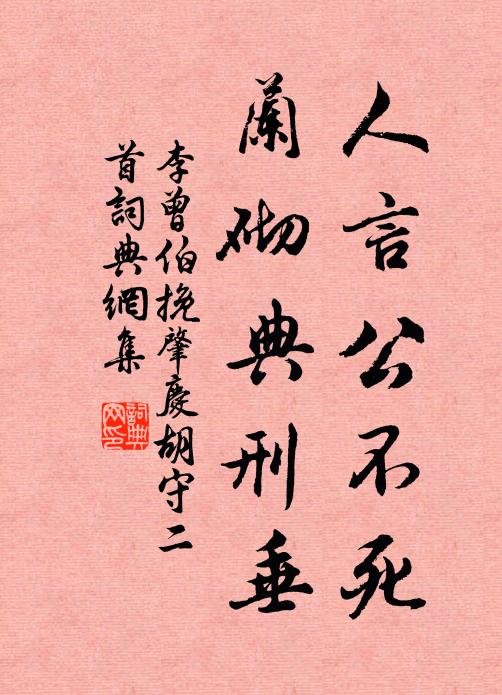 人言公不死
蘭砌典刑垂
李曾伯挽肇慶胡守二
首詞典網集
詞典
网印